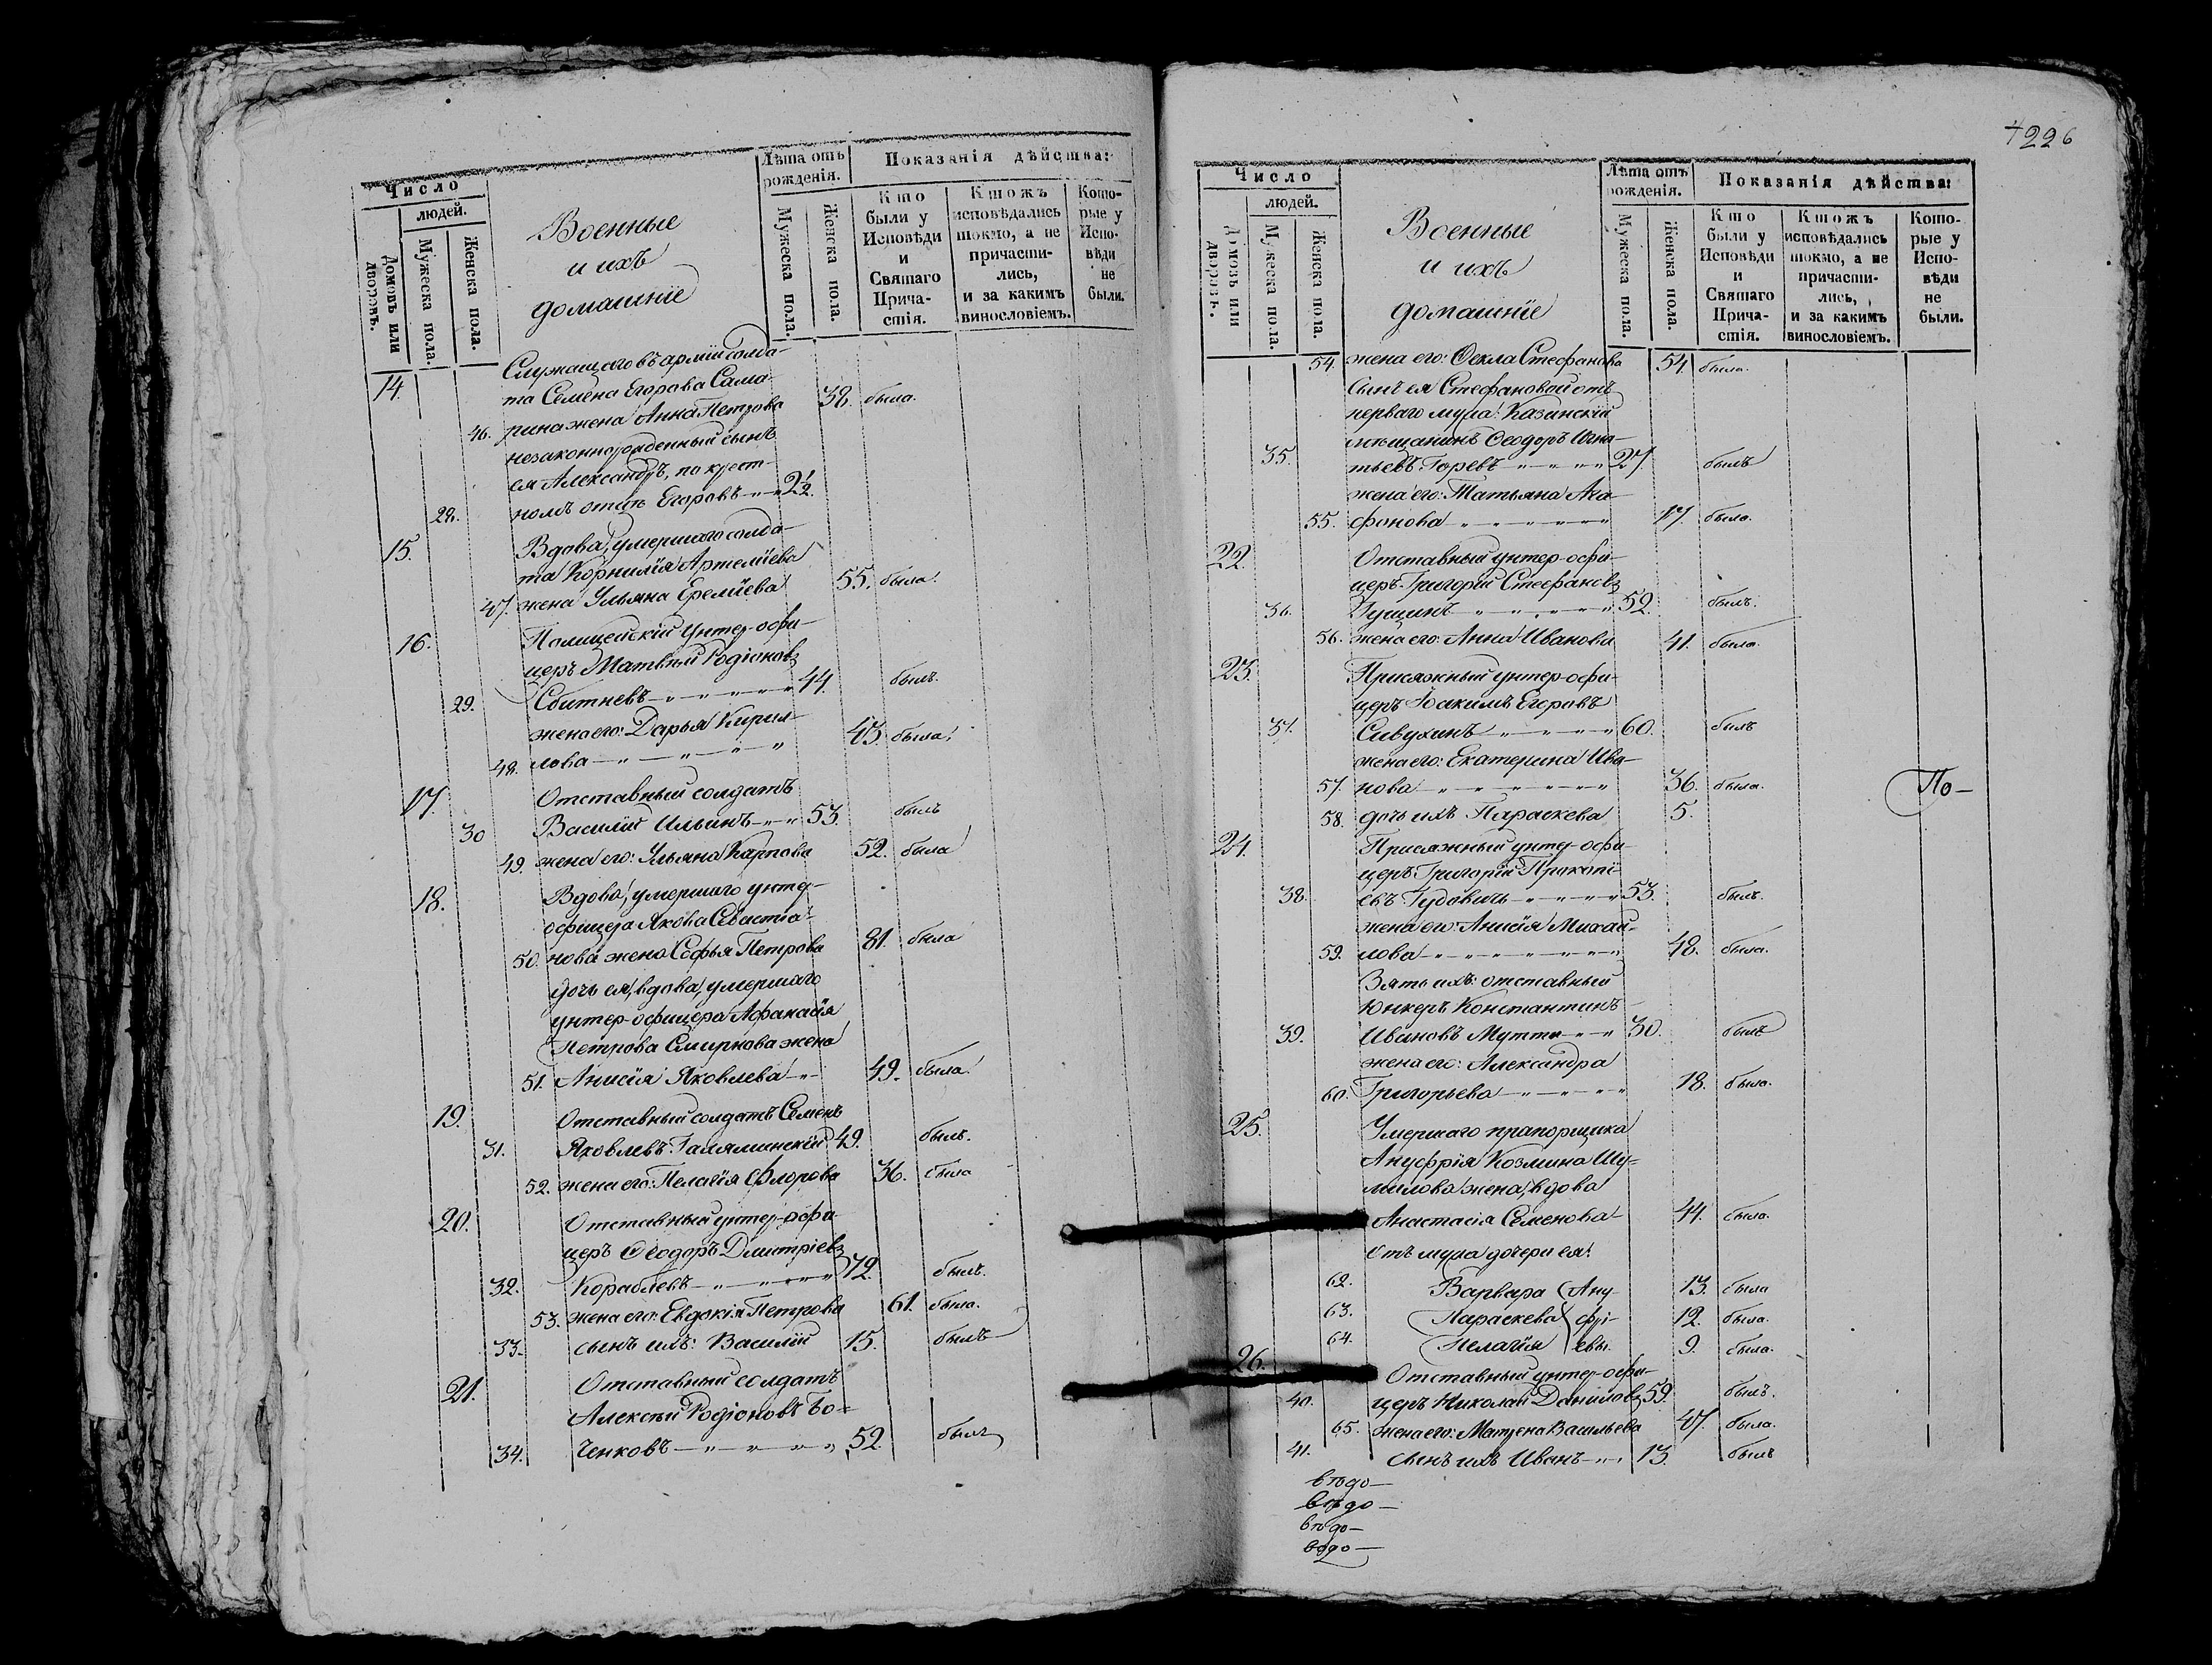 Число
людей.
Домовъ или дворовъ.
Мужеска пола.
Женска пола.
Военные
и ихъ
домашніе
Лѣта отъ рожденія.
Мужеска пола.
Женска пола.
Показанія дѣйства:
Кто были у Исповѣди и Святаго Прича-стія.
Ктожъ исповѣдались токмо, а не причасти-лись, и за какимъ винословіемъ.
Кото-рые у Испо-вѣди не были.
Служащаго въ арміи солда-
14. та Семена Егорова Сама-
46. рина жена Анна Петрова 38. была.
незаконнорожденный сынъ
ея Александръ, по крест-
28. номъ отцѣ Егоровъ 2½.
15. Вдова, умершаго солда-
та Корнилія Артеміева
47. жена Ульяна Еремѣева 55. была.
16. Полицейскій Унтер-офи-
церъ Матвѣй Родіоновъ
29. Сбитневъ 44. былъ.
жена его: Дарья Кирил-
48. лова 43. была.
17. Отставный солдатъ
30 Василій Ильинъ 53. былъ
49. жена его: Ульяна Карпова 52. была
18. Вдова, умершаго унтер-
офицера Якова Севастіа-
50. нова жена Софья Петрова 81. была
дочь ея, вдова, умершаго
унтер-офицера Афанасія
Петрова Смирнова жена
51. Анисія Яковлева 49. была.
19. Отставный солдатъ Семенъ
31. Яковлевъ Галяминскій 49. былъ.
52. жена его: Пелагія Флорова 36. была
20. Отставный унтер-офи-
церъ Ѳеодоръ Дмитріевъ
32. Кораблевъ 72. былъ.
53. жена его: Евдокія Петрова 61. была.
33. сынъ ихъ: Василій 15. былъ
21. Отставный солдатъ
Алексѣй Родіоновъ Бо-
34. ченковъ 52 былъ
4226
Число
людей.
Домовъ или дворовъ.
Мужеска пола.
Женска пола.
Военные
и ихъ
домашніе
Лѣта отъ рожденія.
Мужеска пола.
Женска пола.
Показанія дѣйства:
Кто были у Исповѣди и Святаго Прича-стія.
Ктожъ исповѣдались токмо, а не причасти-лись, и за какимъ винословіемъ.
Кото-рые у Испо-вѣди не были.
54. жена его: Ѳекла Стефанова 54. была.
Сынъ ея Стефановой отъ
перваго мужа:
мѣщанинъ Ѳеодоръ Игна-
35. тьевъ Горевъ 27. былъ
жена его: Татьяна Ага-
55. фонова 17. была.
22. Отставный унтер-офи-
церъ Григорій Стефановъ
36. 52. былъ.
56. жена его: Анна Иванова 41. была.
23. Присяжный унтер-офи-
церъ Іоакимъ Егоровъ
37. Сивухинъ 60. былъ
жена его: Екатерина Ива-
57. нова 36. была.
По-
58. дочь ихъ Параскева 5.
24. Присяжный унтер-офи-
церъ Григорій Прокопі-
38. евъ Гудовичь 53. былъ.
жена его: Анисія Михай-
59. лова 48. была.
Зять ихъ: отставный
Юнкеръ Константинъ
39. Ивановъ Мутти 30. былъ
жена его: Александра
60. Григорьева 18. была.
25. Умершаго прапорщика
Ануфрія Козмина Шу-
милова жена, вдова
Анастасія Семенова 44. была.
Отъ мужа дочери ея:
62. Варвара Ану- 13. была
63. Параскева фрі- 12. была.
64. Пелагія евы. 9. была.
26. Отставный унтер-офи-
40. церъ Николай Даниловъ 59. былъ.
65. жена его: Матрена Васильева 47. была.
41. сынъ ихъ Иванъ 13. былъ
вѣдо-
вѣдо-
вѣдо-
вѣдо-